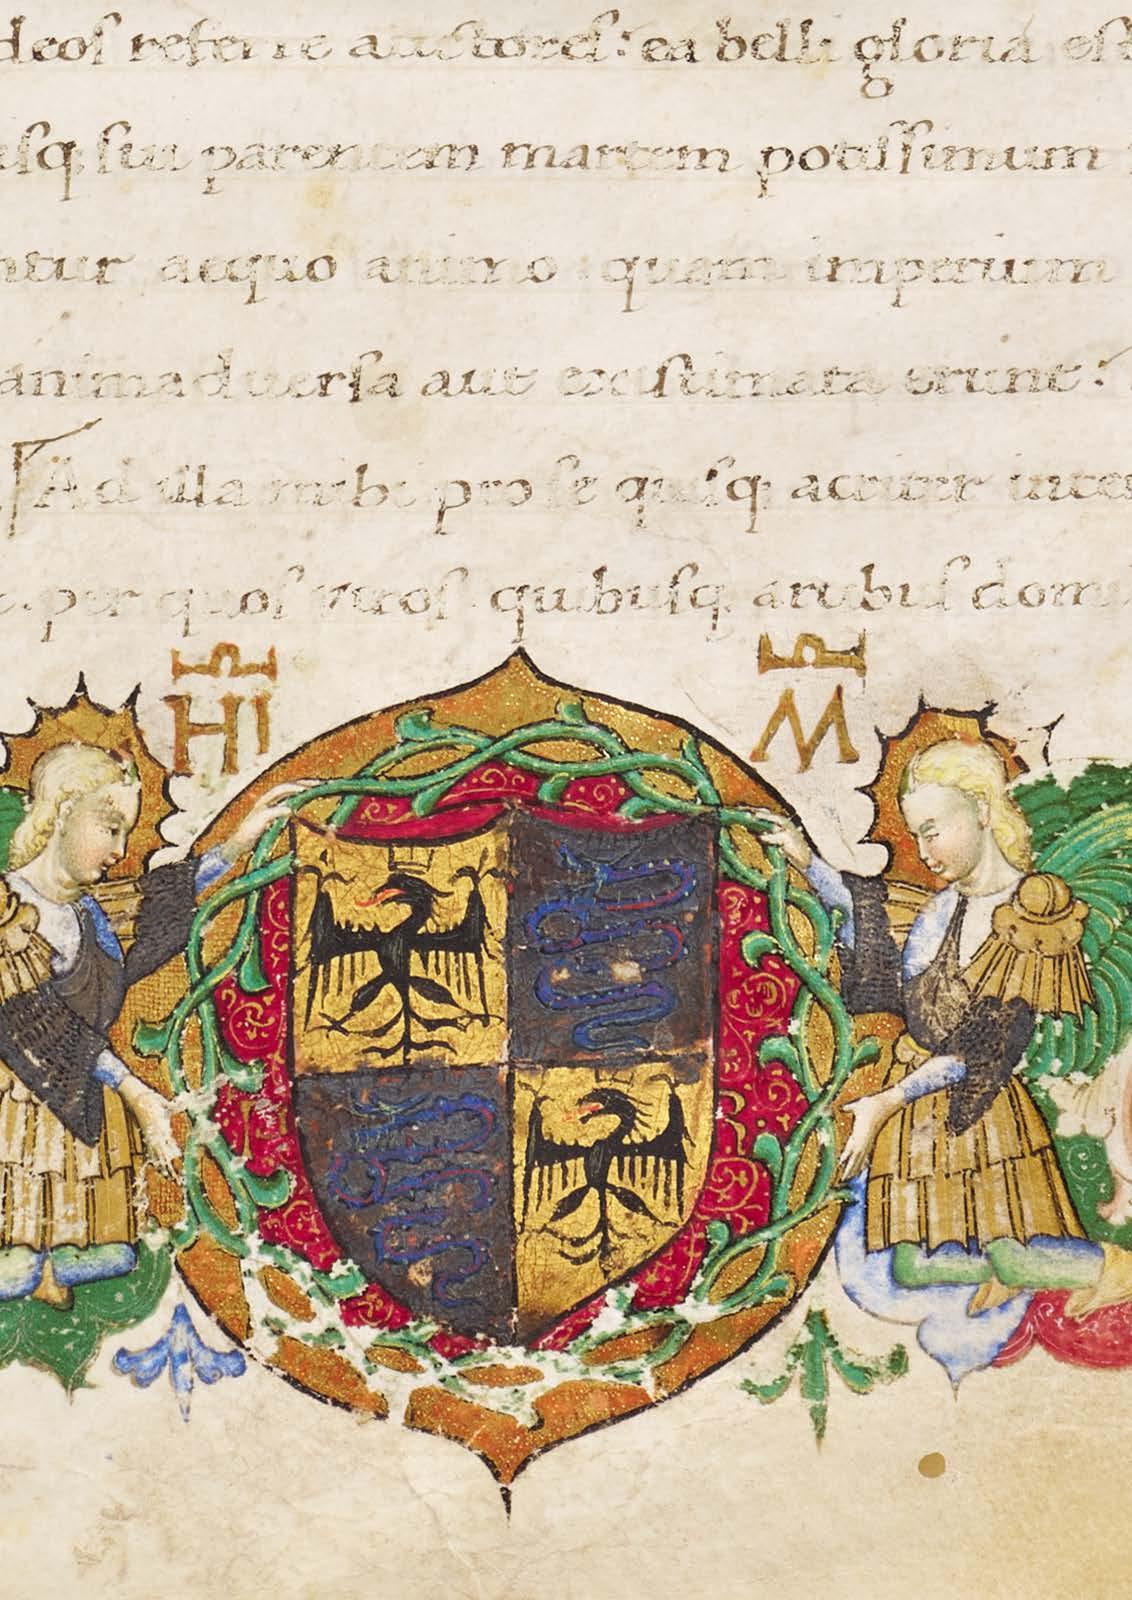 deos referre auctores: ea belli gloria est
usq, sui parentem martem potissimum
ntur aequo animo quam imperium
animaduersa aut existimata erunt:
Ad illa mihi pro se quisq, acriter inten
per quos viros quibusq, artibus domi
HI M